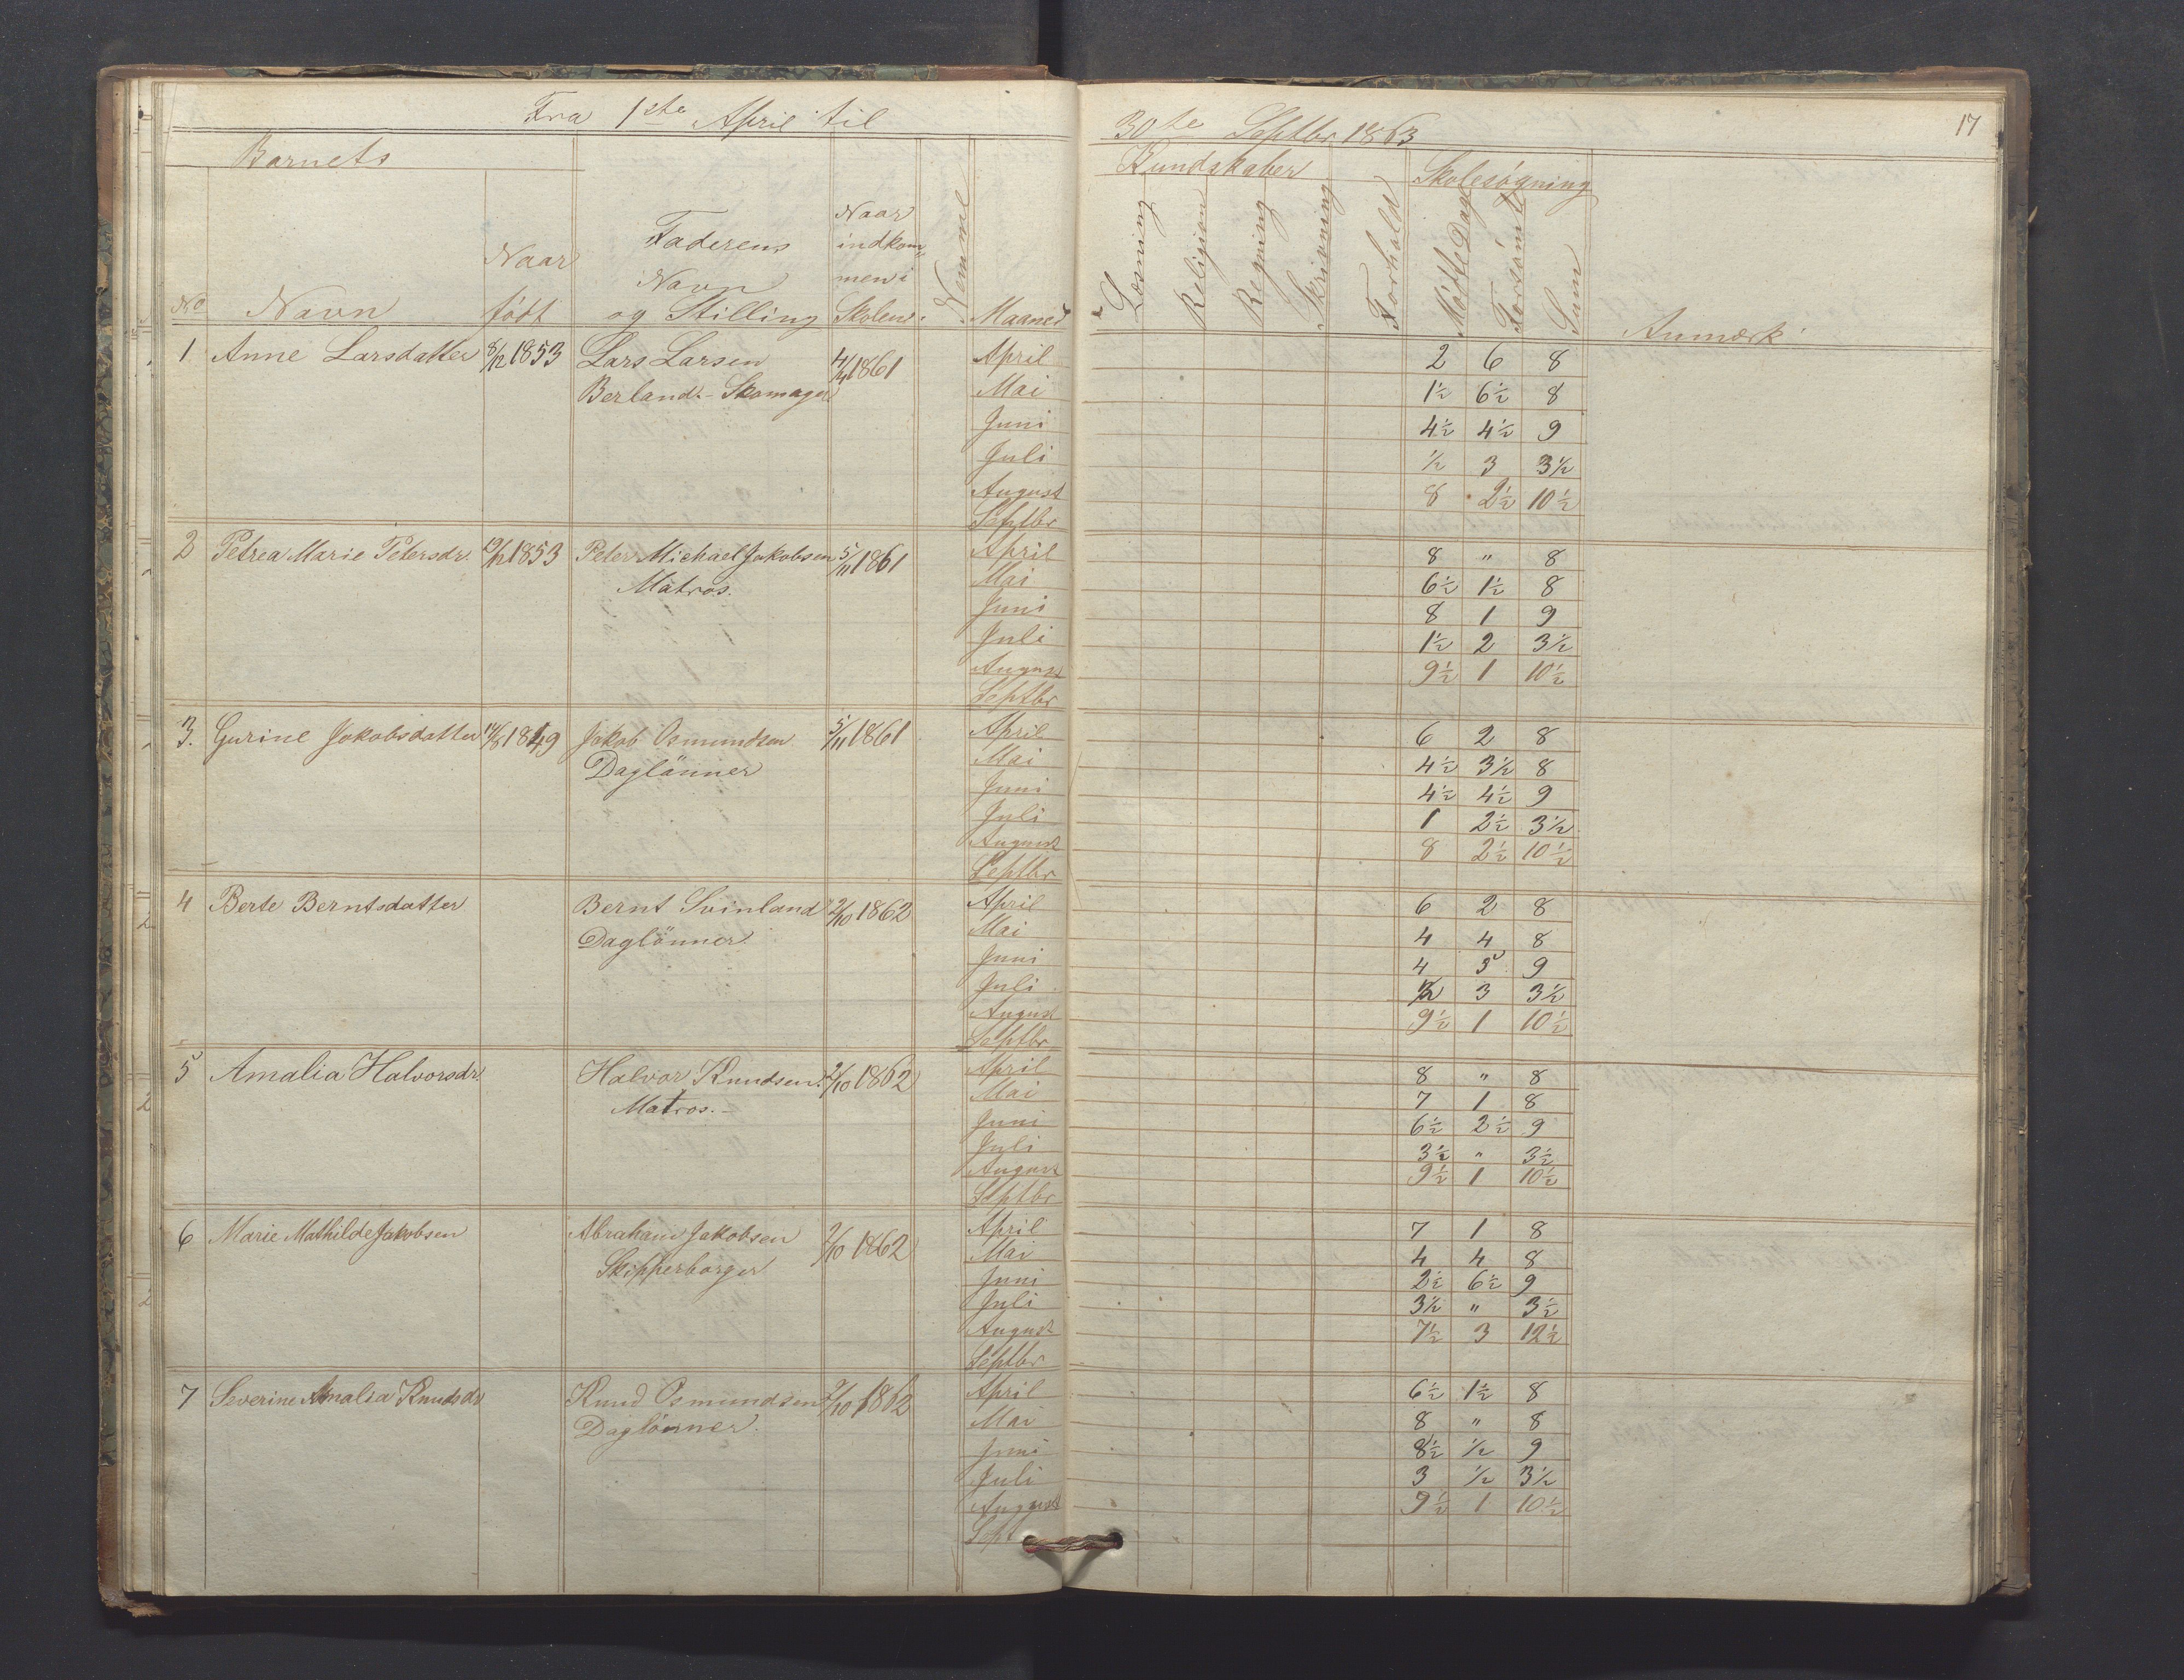 Fra 1ste April til 30te Septbr 1863
17
Barnets
Kundskaber
Skolesøgning
No
Navn
Naar født
Faderens Navn og Stilling
Naar indkommen i Skolen.
Nemme
Maaned
Læsning
Religion
Regning
Skrivning
Forhold
Mødte Dage
Forsømte
Sum
Anmærk
1 Anne Larsdatter 8/12 1853 Lars Larsen 4/4 1861 April 2 6 8
Berland.- Skomager Mai 1½ 6½ 8
Juni 4½ 4½ 9
Juli ½ 3 3½
August 8 2½ 10½
Septbr
2 Petrea Marie Petersdr. 1853 Peter Michael Jakobsen 5/11 1861 April 8 " 8
Matros. Mai 6½ 1½ 8
Juni 8 1 9
Juli 1½ 2 3½
August 9½ 1 10½
Septbr
3. Gurine Jakobsdatter 1849 Jakob Osmundsen 5/11 1861 April 6 2 8
Daglönner Mai 4½ 3½ 8
Juni 4½ 4½ 9
Juli 1 2½ 3½
August 8 2½ 10½
Septbr
4 Berte Berntsdatter Bernt Svinland 2/10 1862 April 6 2 8
Daglönner. Mai 4 4 8
Juni 4 5 9
Juli ½ 3 3½
August 9½ 1 10½
Septbr
5 Amalia Halvorsdr. Halvor Knudsen. 2/10 1862 April 8 " 8
Matros.- Mai 7 1 8
Juni 6½ 2½ 9
Juli 3½ " 3½
August 9½ 1 10½
Septbr
6 Marie Mathilde Jakobsen Abraham Jakobsen 2/10 1862 April 7 1 8
Skipperborger Mai 4 4 8
Juni 2½ 6½ 9
Juli 3½ " 3½
August 7½ 3 12½
Septbr
7 Severine Amalia Knudsdr Knud Osmundsen 2/10 1862 April 6½ 1½ 8
Daglönner. Mai 8 " 8
Juni 8½ ½ 9
Juli 3 ½ 3½
August 9½ 1 10½
Sept